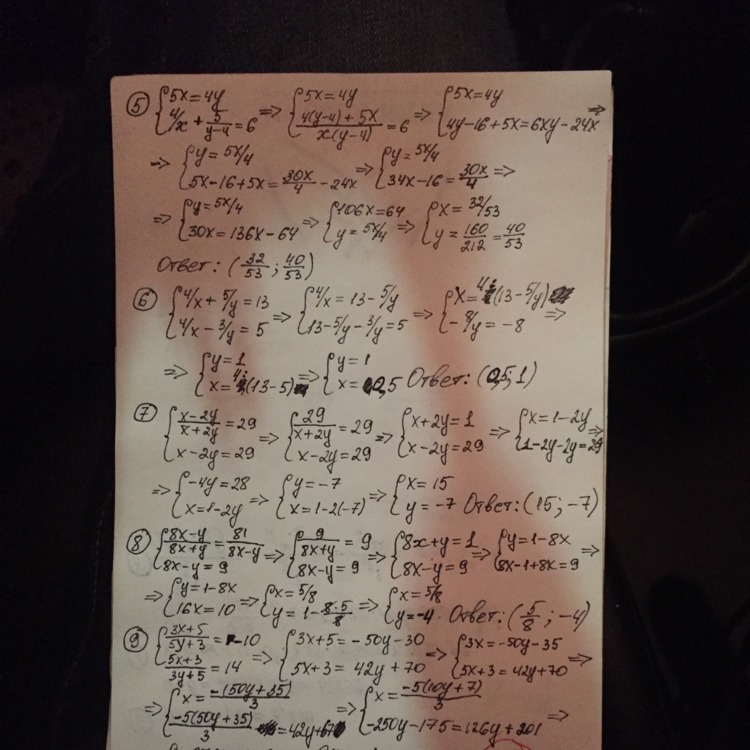 ⑤ {5x=4y ; 4/x + 5/(y-4) = 6 => {5x=4y ; (4(y-4)+5x)/(x(y-4)) = 6 => {5x=4y ; 4y-16+5x=6xy-24x =>
=> {y=5x/4 ; 5x-16+5x=30x/4-24x => {y=5x/4 ; 34x-16=30x/4 =>
=> {y=5x/4 ; 30x=136x-64 => {106x=64 ; y=5x/4 => {x=32/53 ; y=160/212=40/53
Ответ: (32/53 ; 40/53)
⑥ {4/x+5/y=13 ; 4/x-3/y=5 => {4/x=13-5/y ; 13-5/y-3/y=5 => {x=4:(13-5/y) ; -8/y=-8 =>
=> {y=1 ; x=4:(13-5) => {y=1 ; x=0,5 Ответ: (0,5;1)
⑦ {(x-2y)/(x+2y)=29 ; x-2y=29 => {29/(x+2y)=29 ; x-2y=29 => {x+2y=1 ; x-2y=29 => {x=1-2y ; 1-2y-2y=29 =>
=> {-4y=28 ; x=1-2y => {y=-7 ; x=1-2(-7) => {x=15 ; y=-7 Ответ: (15; -7)
⑧ {(8x-y)/(8x+y)=81/(8x-y) ; 8x-y=9 => {9/(8x+y)=9 ; 8x-y=9 => {8x+y=1 ; 8x-y=9 => {y=1-8x ; 8x-1+8x=9 =>
=> {y=1-8x ; 16x=10 => {x=5/8 ; y=1-8·5/8 => {x=5/8 ; y=-4 Ответ: (5/8 ; -4)
⑨ {(3x+5)/(5y+3)=-10 ; (5x+3)/(3y+5)=14 => {3x+5=-50y-30 ; 5x+3=42y+70 => {3x=-50y-35 ; 5x+3=42y+70 =>
=> {x=-(50y+35)/3 ; -5(50y+35)/3=42y+67 => {x=-5(10y+7)/3 ; -250y-175=126y+201 =>